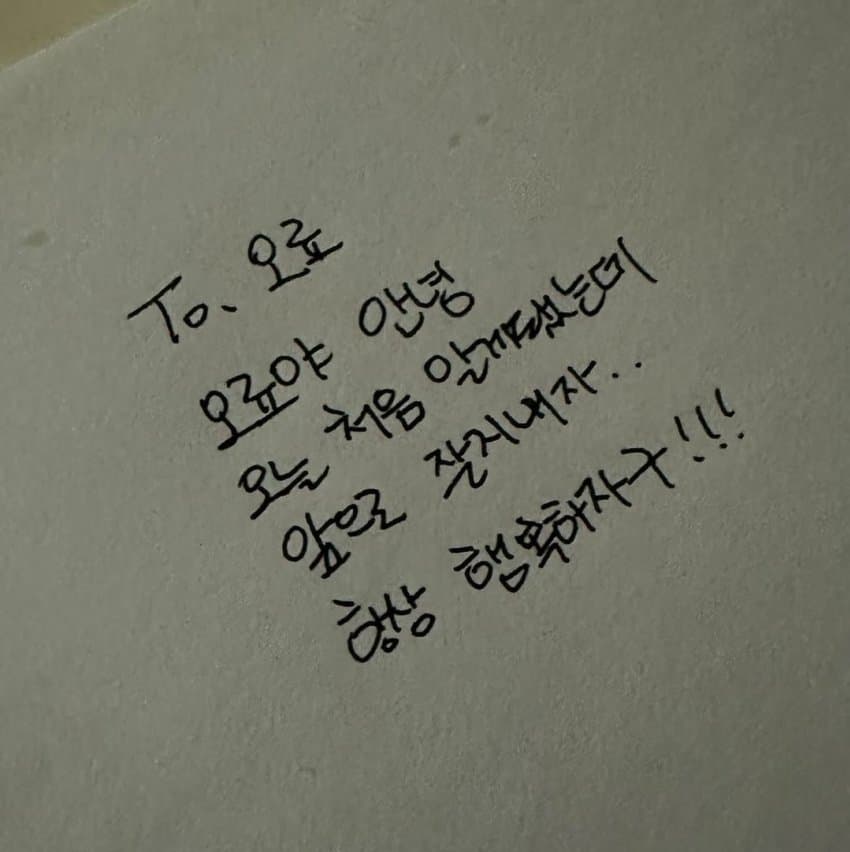 To. 오료
오료야 안녕
오늘 처음 알게됐는데
앞으로 잘지내자..
항상 행복하자구!!!